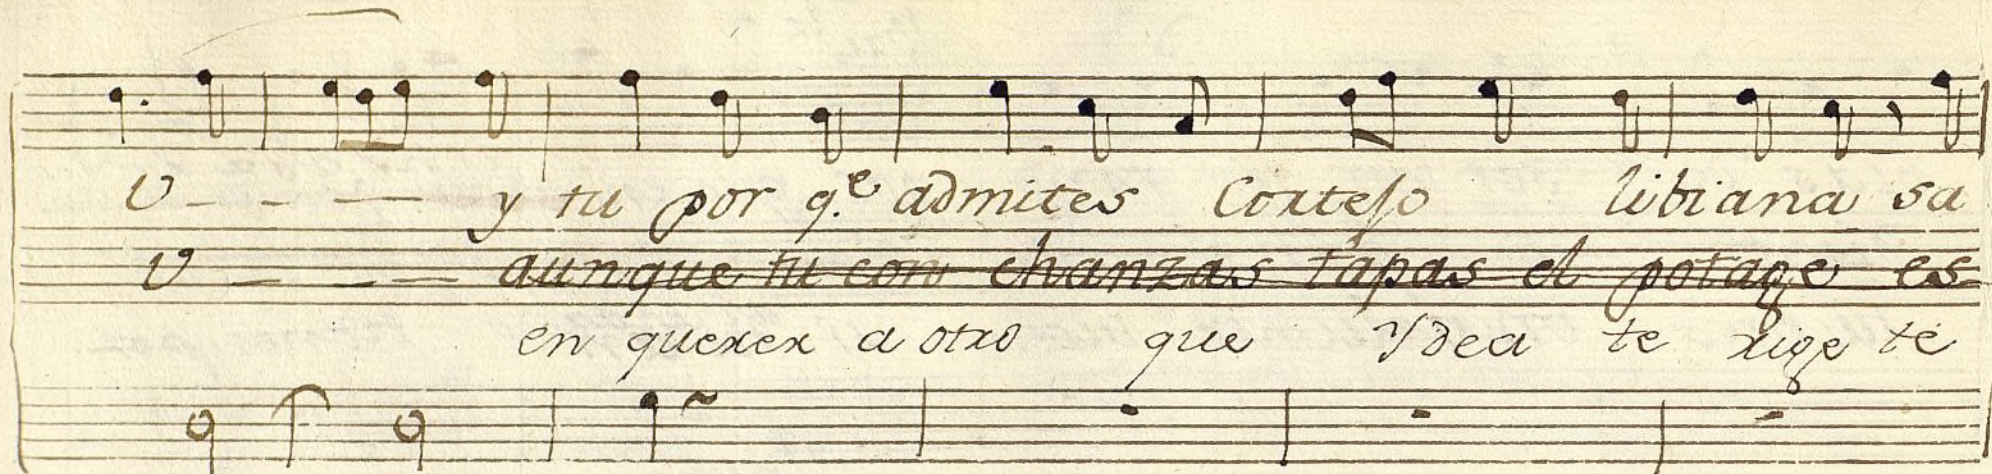 v - - - - y tu por q.e admites Corteso libiana sa
v - - - - aunque tu con chanzas tapas el potage es
en querer a otro que Ydea te rige te